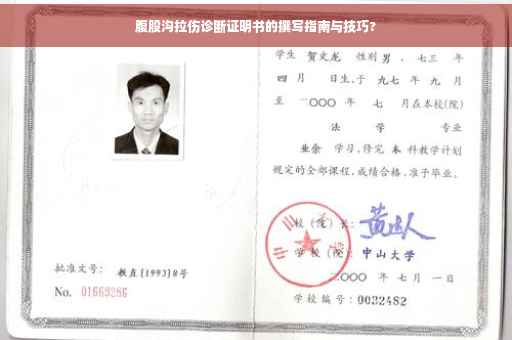 腹股沟拉伤诊断证明书的撰写指南与技巧?
学生 贺文龙 性别 男, 七三 年
四 月 日生,于 九七 年 九 月
至 二〇〇〇 年 七 月在本校(院)
法 学 专业
业余 学习,修完 本 科教学计划
规定的全部课程,成绩合格,准予毕业。
校(院)长:
学 校(院): 中山大学
二〇〇〇 年 七 月 一 日
批准文号: 教直[1993]8号
No. 01669286
学校编号: 0032482